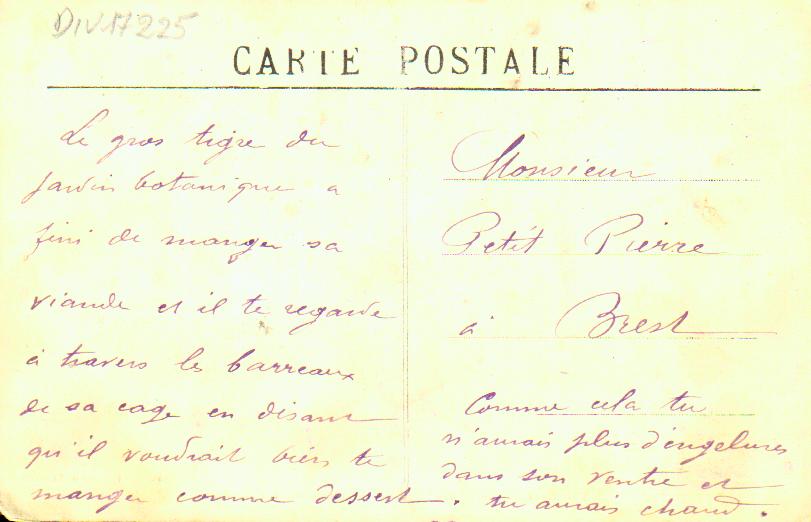 DIV17225
CARTE POSTALE
Le gros tigre du
jardin botanique a
fini de manger sa
viande et il te regarde
à travers les barreaux
de sa cage en disant
qu'il voudrait bien te
manger comme dessert.
Monsieur
Petit Pierre
à Brest
Comme cela tu
n'aurais plus d'engelures
dans son ventre et
tu aurais chaud.